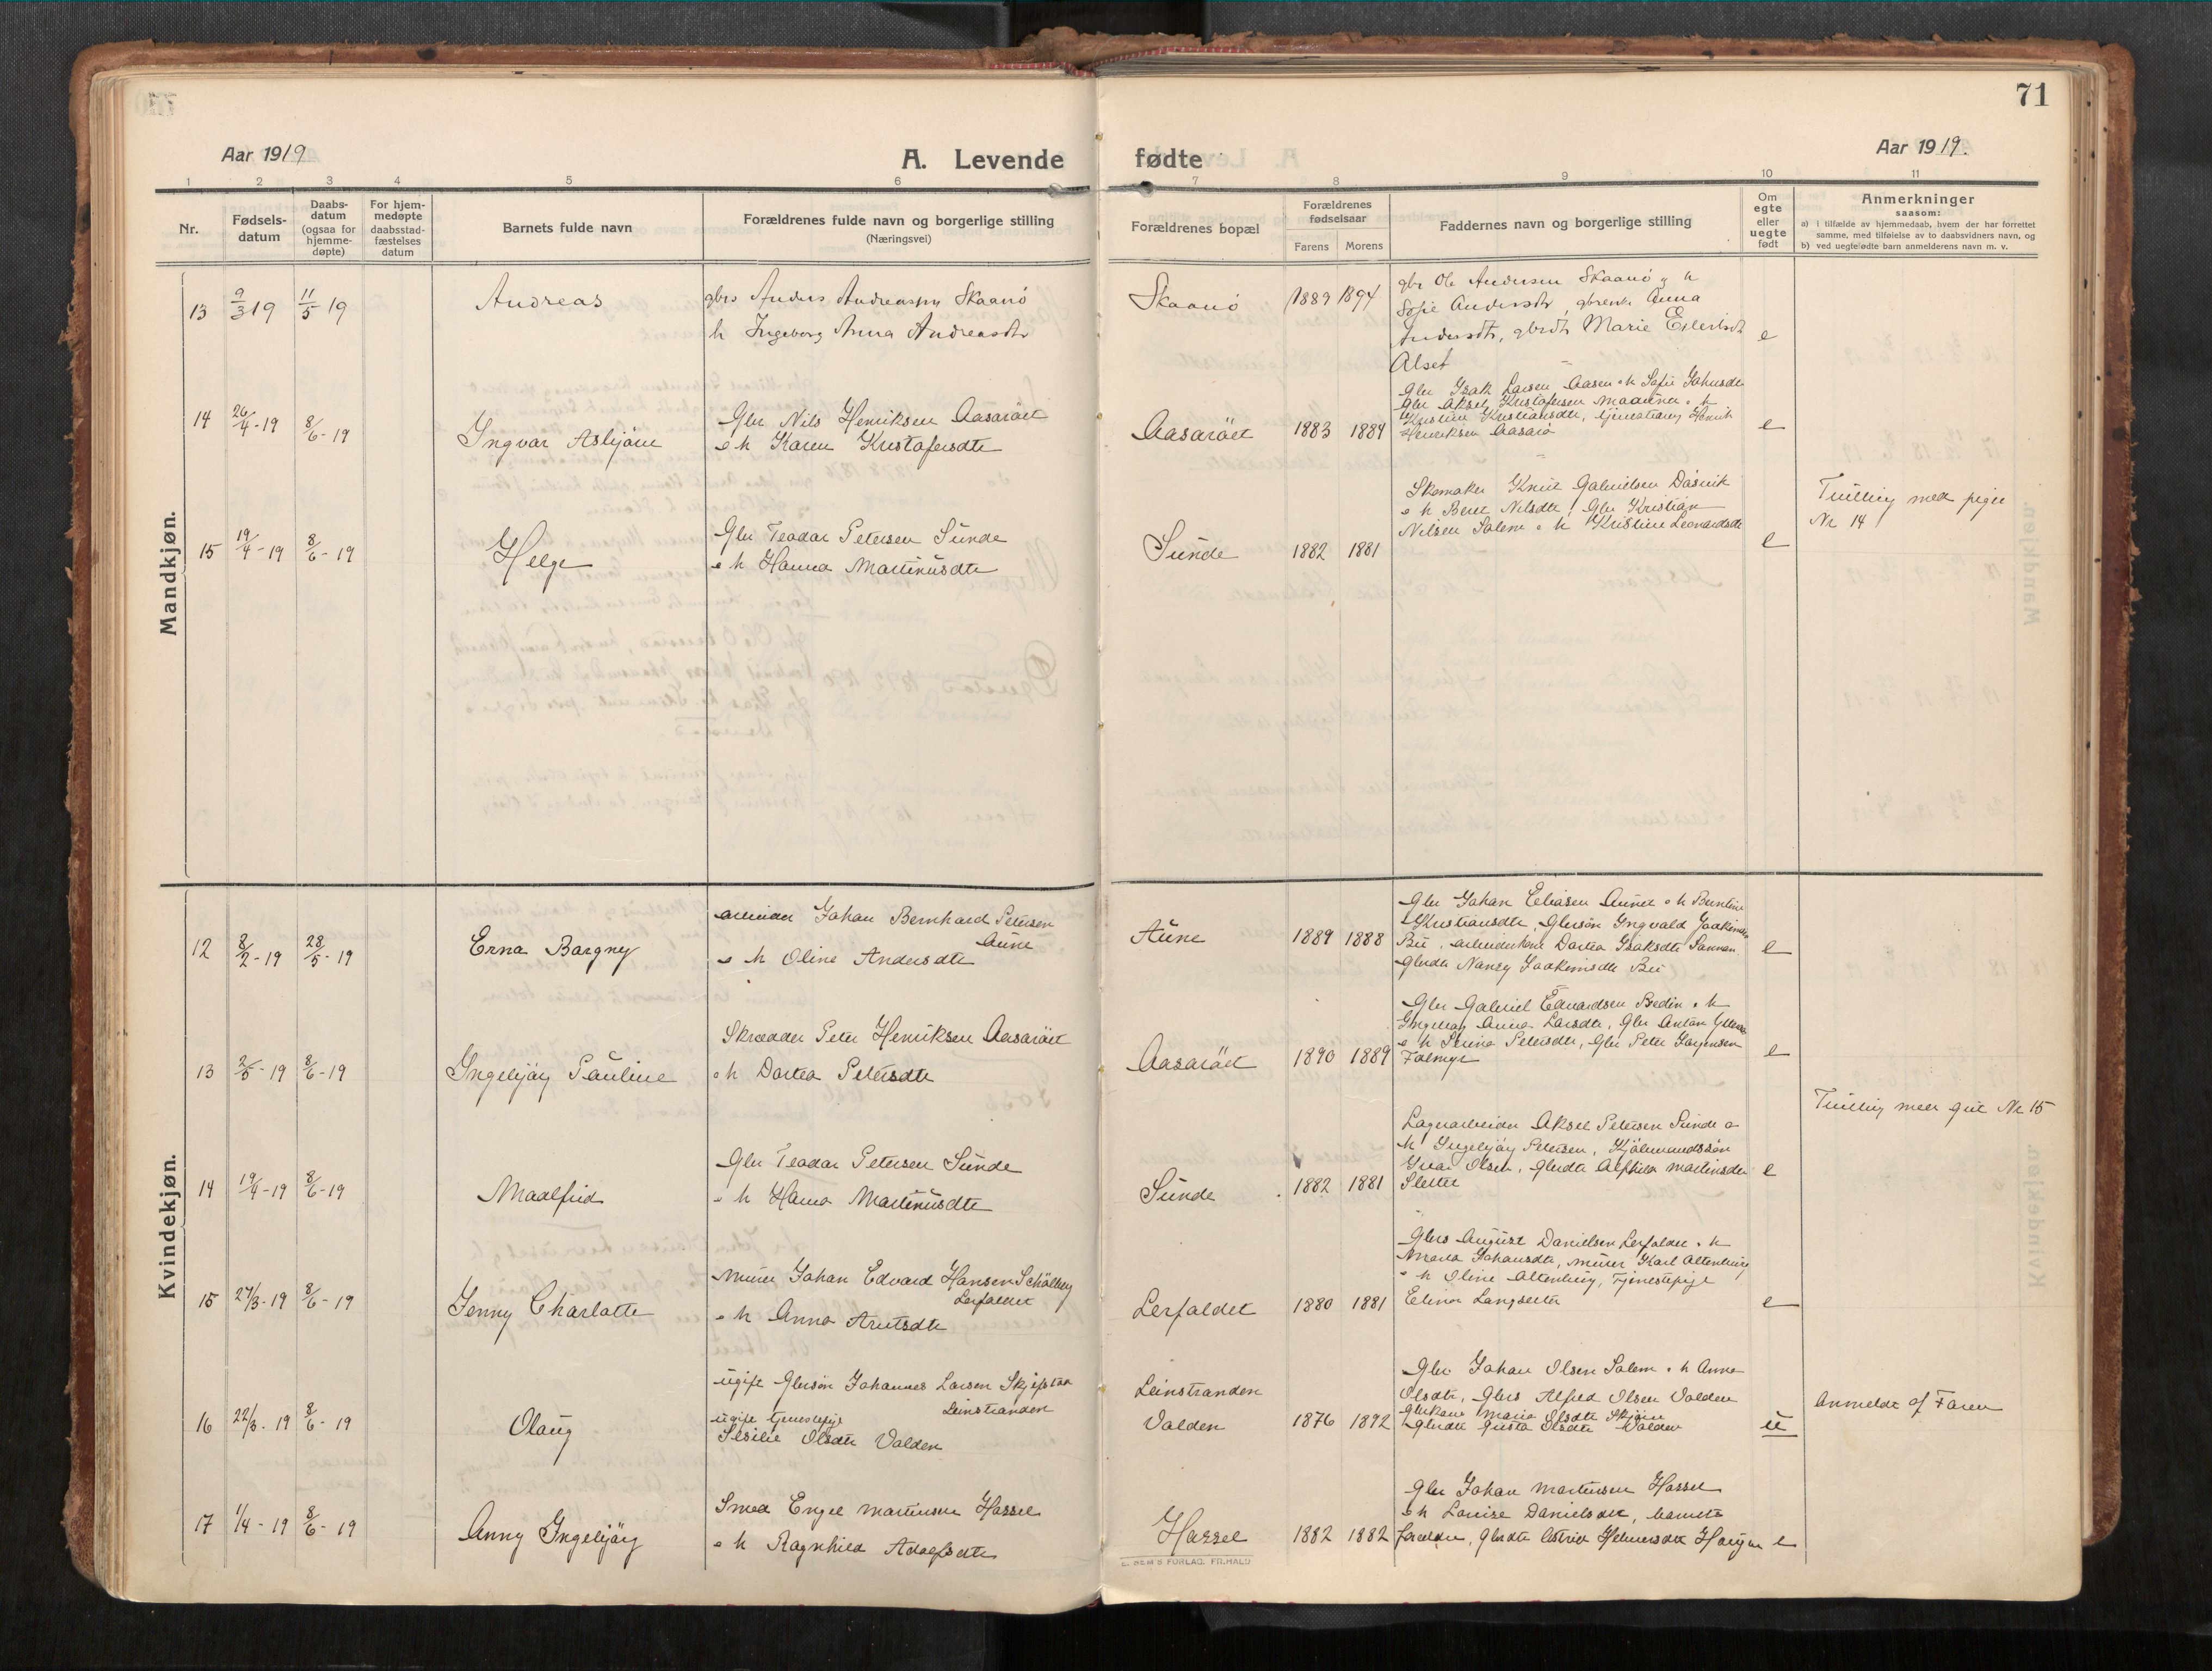 71
Aar 1919
A. Levende
fødte
Aar 1919.
1 2 3 4 5 6 7 8 9 10 11
Nr.
Fødsels-
datum
Daabs-
datum
(ogsaa for
hjemme-
døpte)
For hjem-
medøpte
daabsstad-
fæstelses
datum
Barnets fulde navn
Forældrenes fulde navn og borgerlige stilling
(Næringsvei)
Forældrenes bopæl
Forældrenes
fødselsaar
Farens Morens
Faddernes navn og borgerlige stilling
Om
egte
eller
uegte
født
Anmerkninger
saasom:
a) i tilfælde av hjemmedaab, hvem der har forrettet
samme, med tilføielse av to daabsvidners navn, og
b) ved uegte fødte barn anmelderens navn m. v.
Mandkjøn.
13 9/3 19 11/5 19 Andreas
gbrs Anders Andreassen Skaanö
h Ingeborg Anna Andreasdtr
Skaanö 1889 1894
gbr Ole Andersen Skaanö og h
Sofie Andersdtr, Anna
Andersdtr, gbrdtr Marie Eilertsdt
Alset
e
14 26/4-19 8/6-19 Ingvar Asbjörn
Gbr Nils Henriksen Aasaröet
o h Karen Kristofersdtr
Aasaröet 1883 1884
Gbr Isak Larsen Aasen o h Sofie Johnsdtr
Gbr Aksel Kristofersen o h
Kristiansdtr, Henrik
Henriksen Aasarö
e
15 19/4-19 8/6-19 Helge
Gbr Teodor Petersen Sunde
o h Hanna Martinusdtr
Sunde 1882 1881
Skomaker Knut Gabrielsen Dasvik
o h Beret Nilsdtr, Gbr Kristian
Nilsen Salem o h Kristine Leonardsdtr
e
Tvilling med pige
Nr 14
Kvindekjøn.
12 8/2-19 28/5-19 Erna Bargny
arbeider Johan Bernhard Petersen
Aune
o h Oline Andersdtr
Aune 1889 1888
Gbr Johan Eliasen Aunet o h Berntine
Kristiansdtr, Gbrsön Ingvald Joakimsen
Bu, arbeiderkone Dortea Isaksdtr Sannan
Gbrdtr Nancy Joakimsdtr Bu
e
13 2/5-19 8/6-19 Ingebjörg Pauline
Skrædder Peter Henriksen Aasaröet
o h Dortea Petersdtr
Aasaröet 1890 1889
Gbr Gabriel Edvardsen Bedin o h
Ingeborg Anna Larsdtr, Gbr Anton
o h Petersdtr, Gbr Peter Jörgensen
e
14 19/4-19 8/6-19 Maalfrid
Gbr Teodor Petersen Sunde
o h Hanna Martinusdtr
Sunde 1882 1881
Lagerarbeider Aksel Petersen Sunde o
h Ingebjörg Petersen,
Ivar Olsen, Gbrdtr Alfhild Martinsdtr
Sletter
e
Tvilling med gut Nr 15
15 27/3-19 8/6-19 Jenny Charlotte
murer Johan Edvard Hansen Schölberg
Lerfaldet
o h Anna Arntsdtr
Lerfaldet 1880 1881
Gbrs August Danielsen Lerfaldet o h
Maria Johansdtr, murer Karl Altenburg
o h Oline Altenburg, Tjenestepige
Elina Langseter
e
16 22/3-19 8/6-19 Olaug
ugift Gbrsön Johannes Larsen Skjefstad
Leinstranden
ugift tjenestepige
Olsdtr Valden
Leinstranden
Valden 1876 1892
Gbr Johan Olsen Salem o h Anna
Olsdtr, Gbrs Alfred Olsen Valden
Gbrkone Maria Olsdtr
Gbrdtr Gusta Olsdtr Valden
u
Anmeldt af Faren
17 1/4-19 8/6-19 Anny Ingebjörg
Smed Engel Martinsen Hassel
o h Ragnhild Adolfsdtr
Hassel 1882 1882
Gbr Johan Martinsen Hassel
o h Louise Danielsdtr, barnets
forældre, Gbrdtr Astrid Helmersdtr
e
E. SEM'S FORLAG, FR.HALD